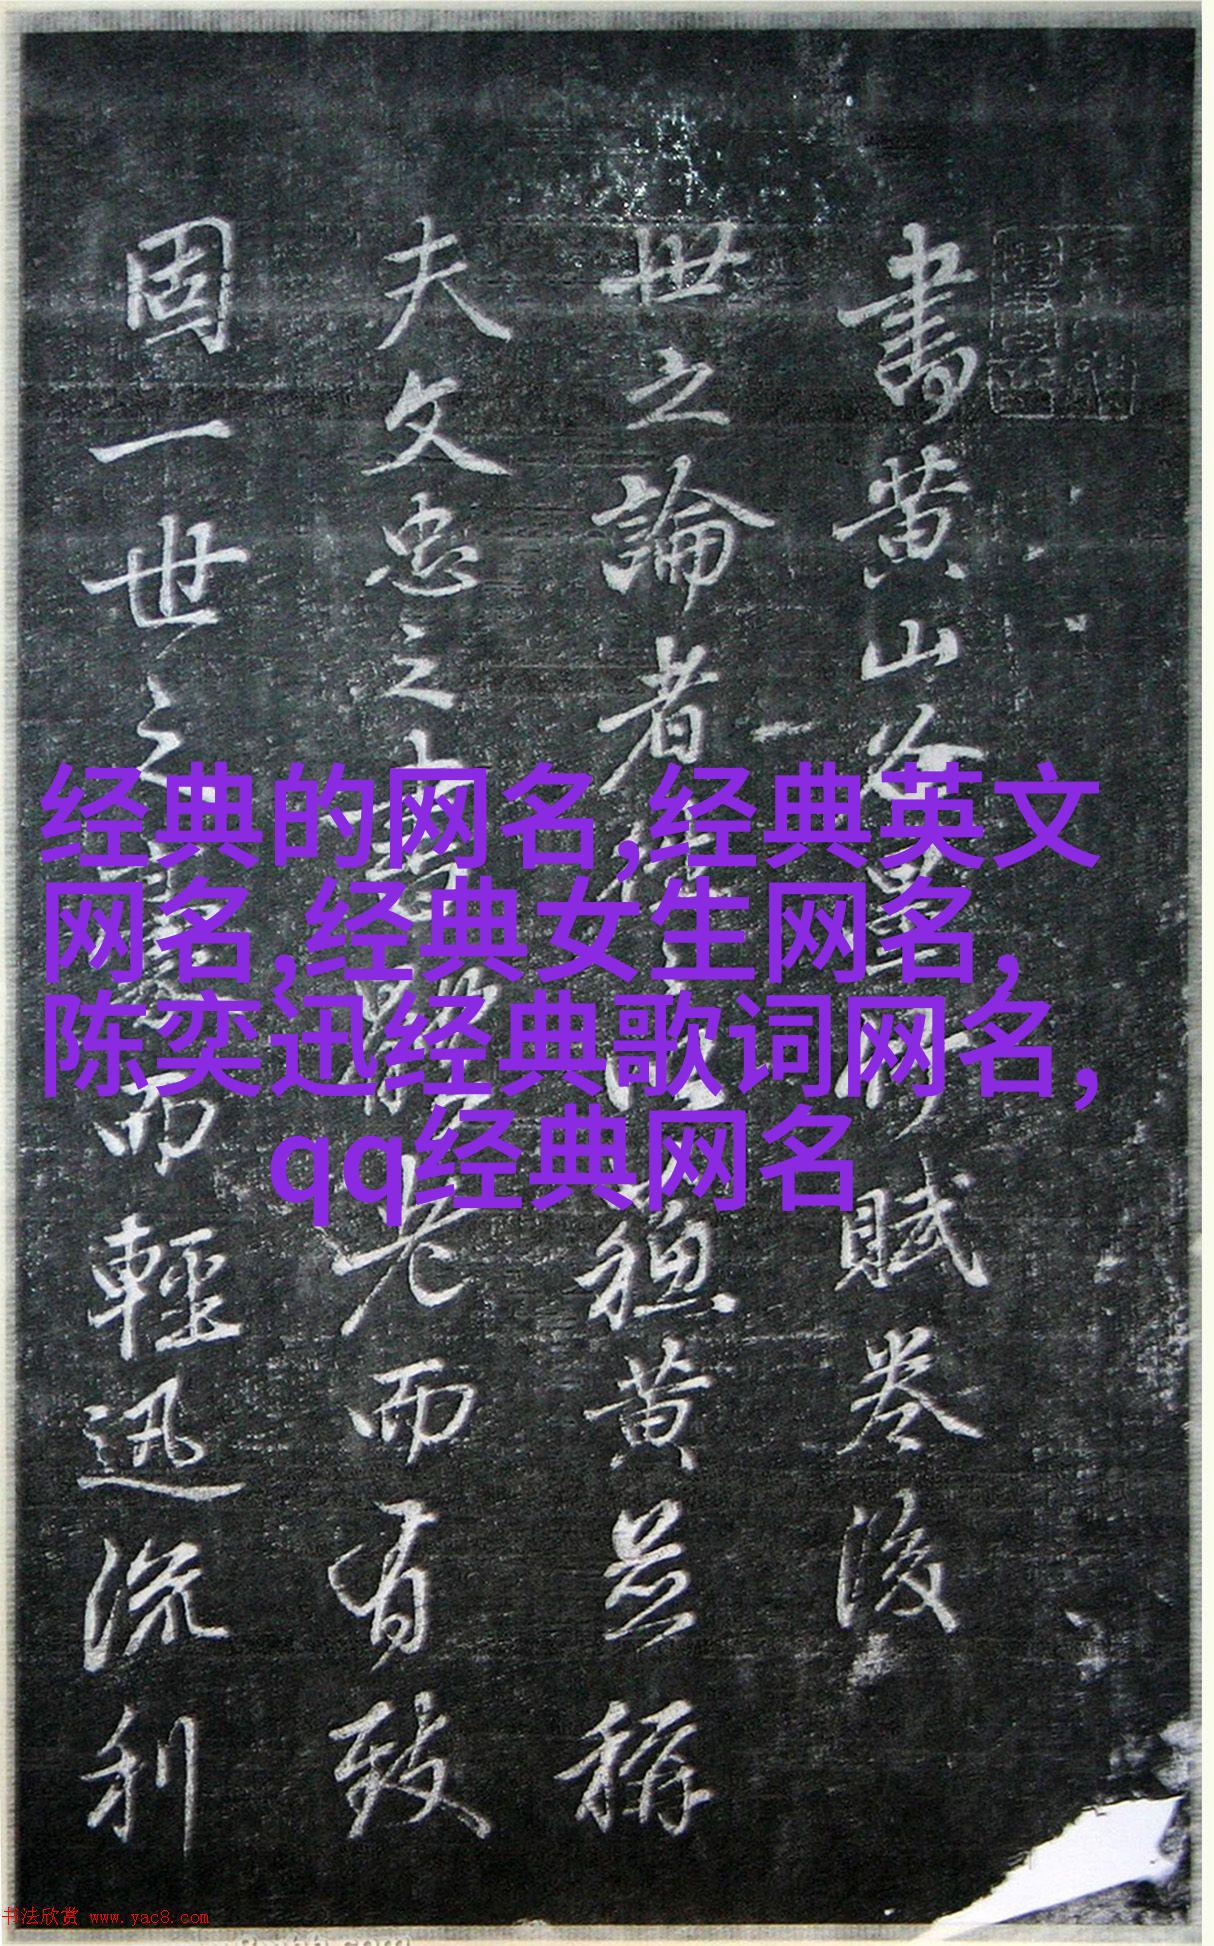 書黄山谷竹賦卷後
世之論者蘇黄並稱
夫文忠之書老而有致
固一世之而輕迅流利
经典的网名,经典英文
网名,经典女生网名,
陈奕迅经典歌词网名,
qq经典网名
书法欣赏 www.yac8.com